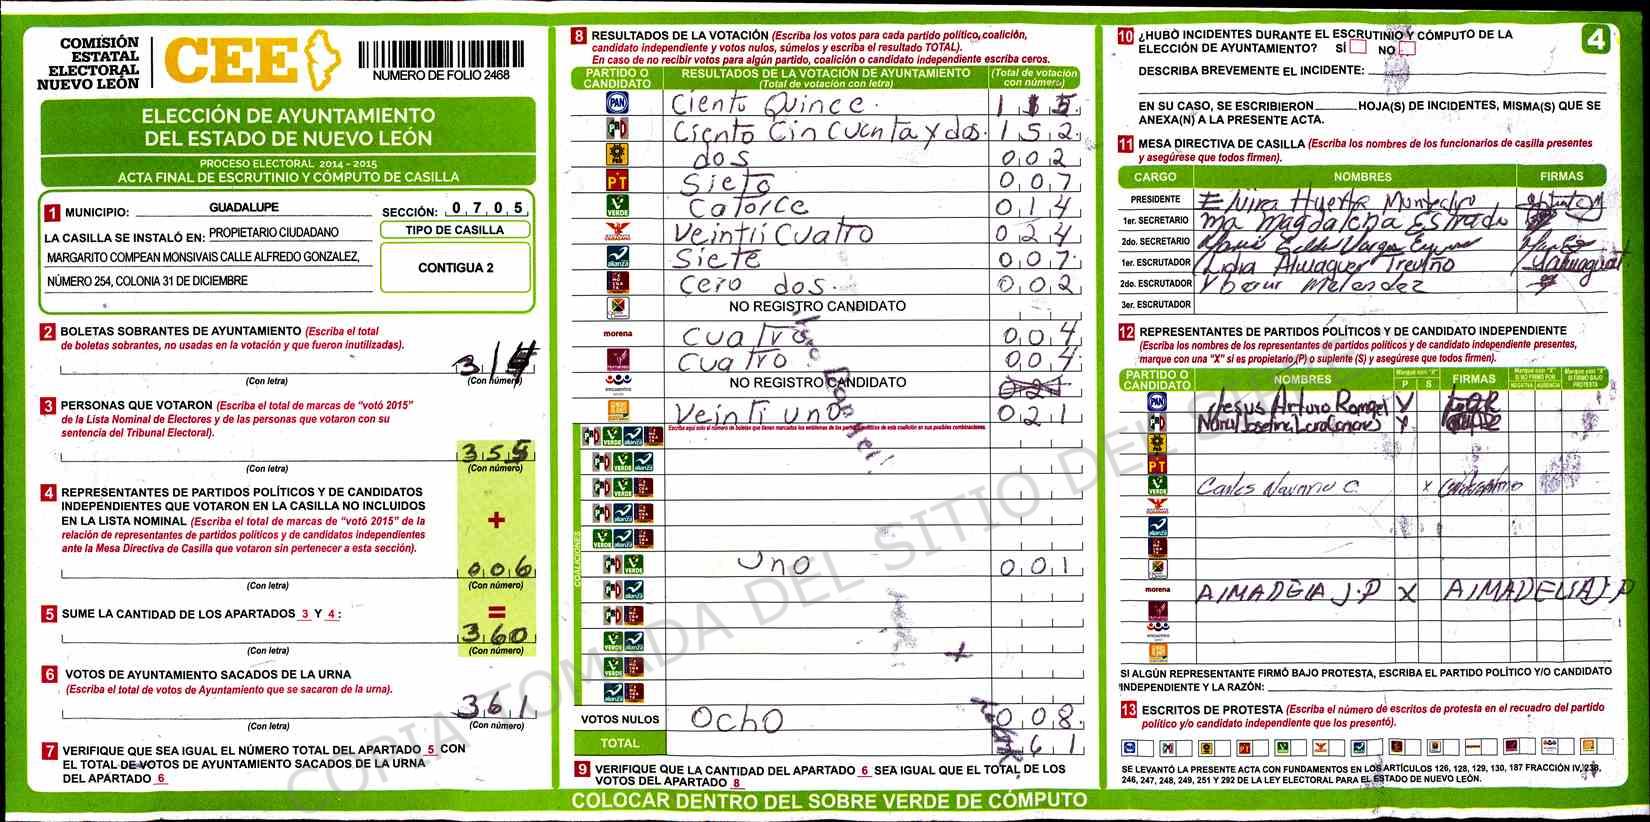 COMISIÓN
ESTATAL
ELECTORAL
NUEVO LEÓN
CEE
NUMERO DE FOLIO 2468
ELECCIÓN DE AYUNTAMIENTO
DEL ESTADO DE NUEVO LEÓN
PROCESO ELECTORAL 2014 - 2015
ACTA FINAL DE ESCRUTINIO Y CÓMPUTO DE CASILLA
1 MUNICIPIO: GUADALUPE SECCIÓN: 0 7 0 5
LA CASILLA SE INSTALÓ EN: PROPIETARIO CIUDADANO
MARGARITO COMPEAN MONSIVAIS CALLE ALFREDO GONZALEZ,
NÚMERO 254, COLONIA 31 DE DICIEMBRE
TIPO DE CASILLA
CONTIGUA 2
2 BOLETAS SOBRANTES DE AYUNTAMIENTO (Escriba el total
de boletas sobrantes, no usadas en la votación y que fueron inutilizadas).
(Con letra) (Con número)
3 PERSONAS QUE VOTARON (Escriba el total de marcas de “votó 2015”
de la Lista Nominal de Electores y de las personas que votaron con su
sentencia del Tribunal Electoral).
355
(Con letra) (Con número)
4 REPRESENTANTES DE PARTIDOS POLÍTICOS Y DE CANDIDATOS
INDEPENDIENTES QUE VOTARON EN LA CASILLA NO INCLUIDOS
EN LA LISTA NOMINAL (Escriba el total de marcas de “votó 2015” de la
relación de representantes de partidos políticos y de candidatos independientes
ante la Mesa Directiva de Casilla que votaron sin pertenecer a esta sección).
+
006
(Con letra) (Con número)
5 SUME LA CANTIDAD DE LOS APARTADOS 3 Y 4:
=
360
(Con letra) (Con número)
6 VOTOS DE AYUNTAMIENTO SACADOS DE LA URNA
(Escriba el total de votos de Ayuntamiento que se sacaron de la urna).
361
(Con letra) (Con número)
7 VERIFIQUE QUE SEA IGUAL EL NÚMERO TOTAL DEL APARTADO 5 CON
EL TOTAL DE VOTOS DE AYUNTAMIENTO SACADOS DE LA URNA
DEL APARTADO 6
8 RESULTADOS DE LA VOTACIÓN (Escriba los votos para cada partido político, coalición,
candidato independiente y votos nulos, súmelos y escriba el resultado TOTAL).
En caso de no recibir votos para algún partido, coalición o candidato independiente escriba ceros.
PARTIDO O
CANDIDATO
RESULTADOS DE LA VOTACIÓN DE AYUNTAMIENTO
(Total de votación con letra)
(Total de votación
con número)
PAN Ciento Quince. 115
PRD Ciento Cincuenta y dos. 152
dos 002
PT Siete 007
VERDE Catorce 014
Veintii Cuatro 024
alianza Siete 007
Cero dos. 002
NO REGISTRO CANDIDATO
morena Cuatro 004
Cuatro 004
NO REGISTRO CANDIDATO 021
Veinti uno 021
COALICIONES
VERDE Uno 001
VOTOS NULOS Ocho 008
TOTAL 61
9 VERIFIQUE QUE LA CANTIDAD DEL APARTADO 6 SEA IGUAL QUE EL TOTAL DE LOS
VOTOS DEL APARTADO 8
COLOCAR DENTRO DEL SOBRE VERDE DE CÓMPUTO
4
10 ¿HUBO INCIDENTES DURANTE EL ESCRUTINIO Y CÓMPUTO DE LA
ELECCIÓN DE AYUNTAMIENTO? SÍ NO
DESCRIBA BREVEMENTE EL INCIDENTE:
EN SU CASO, SE ESCRIBIERON HOJA(S) DE INCIDENTES, MISMA(S) QUE SE
ANEXA(N) A LA PRESENTE ACTA.
11 MESA DIRECTIVA DE CASILLA (Escriba los nombres de los funcionarios de casilla presentes
y asegúrese que todos firmen).
CARGO NOMBRES FIRMAS
PRESIDENTE Elvira Huerta
1er. SECRETARIO Ma Magdalena Estrada
2do. SECRETARIO Vargas
1er. ESCRUTADOR Lidia Almaguer Treviño
2do. ESCRUTADOR Melendez
3er. ESCRUTADOR
12 REPRESENTANTES DE PARTIDOS POLÍTICOS Y DE CANDIDATO INDEPENDIENTE
(Escriba los nombres de los representantes de partidos políticos y de candidato independiente presentes,
marque con una “X” si es propietario (P) o suplente (S) y asegúrese que todos firmen).
PARTIDO O
CANDIDATO
NOMBRES P S FIRMAS
PAN Jesus Arturo Rangel
Josefina
PT
VERDE Carlos Navarro C. x
morena AIMADELIA J.P X AIMADELIA J.P
SI ALGÚN REPRESENTANTE FIRMÓ BAJO PROTESTA, ESCRIBA EL PARTIDO POLÍTICO Y/O CANDIDATO
INDEPENDIENTE Y LA RAZÓN:
13 ESCRITOS DE PROTESTA (Escriba el número de escritos de protesta en el recuadro del partido
político y/o candidato independiente que los presentó).
SE LEVANTÓ LA PRESENTE ACTA CON FUNDAMENTOS EN LOS ARTÍCULOS 126, 128, 129, 130, 187 FRACCIÓN IV, 238,
246, 247, 248, 249, 251 Y 292 DE LA LEY ELECTORAL PARA EL ESTADO DE NUEVO LEÓN.
COPIA TOMADA DEL SITIO DEL